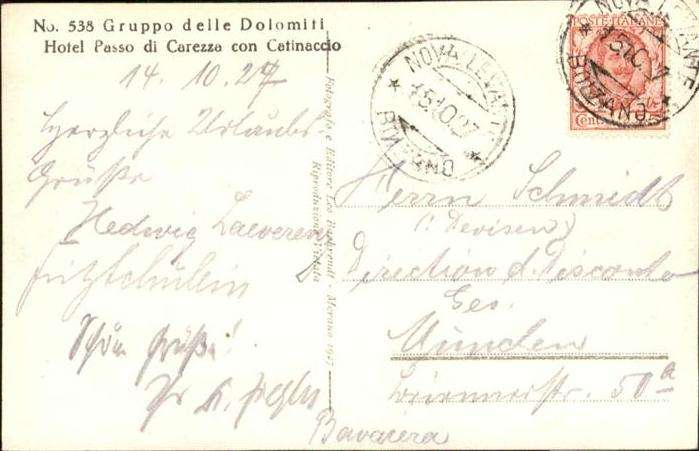 No. 538 Gruppo delle Dolomiti
Hotel Passo di Carezza con Catinaccio
14. 10. 27
Herzliche Urlaubs-
Grüße
Hedwig Laeveren
Schöne Grüße!
Fotografo e Editore Leo Bährendt - Merano 1927
Riproduzione Vietata
NOVA LEVANTE
15.10.27
POSTE ITALIANE
Cent
NOVA LEVANTE
Herrn Schmidt
(: Devisen)
Direction d. Disconto
Ges.
München
50a
Bavaria